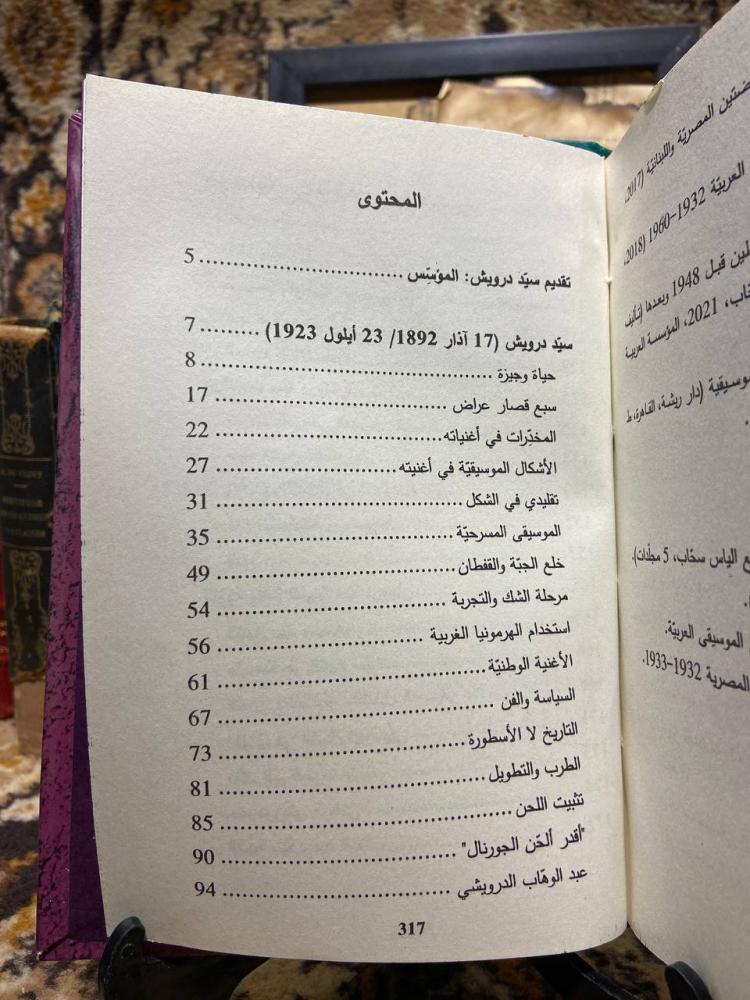 المحتوى
تقديم سيّد درويش: المؤسّس ........ 5
سيّد درويش (17 آذار 1892/ 23 أيلول 1923) ........ 7
حياة وجيزة ........ 8
سبع قصار عراض ........ 17
المخدّرات في أغنياته ........ 22
الأشكال الموسيقيّة في أغنيته ........ 27
تقليدي في الشكل ........ 31
الموسيقى المسرحيّة ........ 35
خلع الجبّة والقفطان ........ 49
مرحلة الشك والتجربة ........ 54
استخدام الهرمونيا الغربية ........ 56
الأغنية الوطنيّة ........ 61
السياسة والفن ........ 67
التاريخ لا الأسطورة ........ 73
الطرب والتطويل ........ 81
تثبيت اللحن ........ 85
"أقدر ألحّن الجورنال" ........ 90
عبد الوهّاب الدرويشي ........ 94
317
المصريّة واللبنانيّة (2017،
العربيّة 1932–1960 (2018،
قبل 1948 وبعدها (تأليف
2021، المؤسسة العربية
(دار ريشة، القاهرة، ط
الياس سحّاب، 5 مجلّدات).
الموسيقى العربيّة.
المصرية 1932–1933.